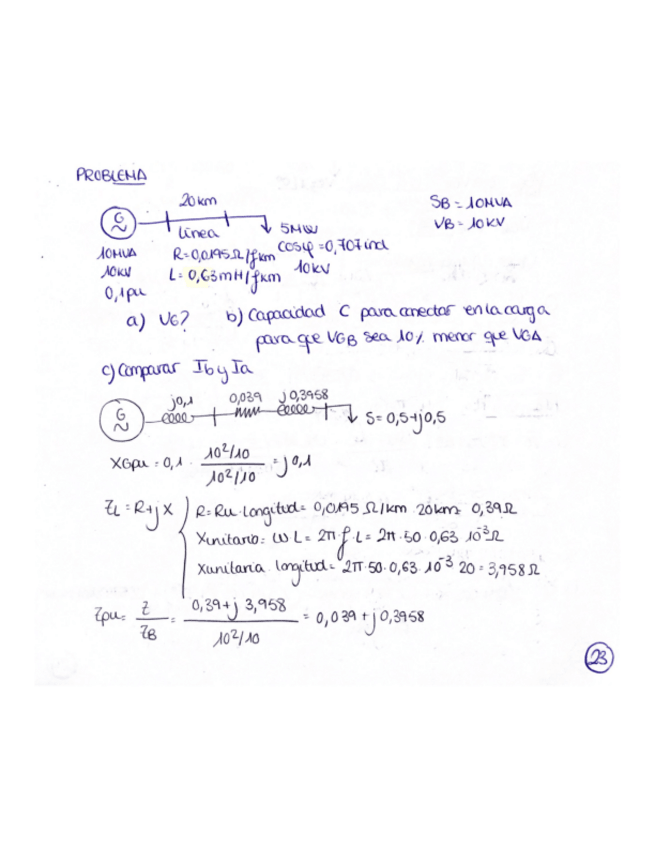 PROBLEMA
20km
SB = 10MVA
VB = 10KV
G
~
línea
5MW
cosφ = 0,707 ind
10KV
10MVA
10KV
0,1pu
R = 0,0195Ω/fkm
L = 0,63mH/fkm
a) VG?
b) Capacidad C para conectar en la carga
para que VGB sea 10% menor que VGA
c) Comparar Ib y Ia
G
~
j0,1
0,039
j0,3958
S = 0,5+j0,5
XGpu = 0,1 · (10²/10)/(10²/10) = j0,1
ZL = R+jX
R = Ru · longitud = 0,0195 Ω/km · 20km = 0,39Ω
Xunitario = ωL = 2π·f·L = 2π·50·0,63·10⁻³Ω
Xunitaria · longitud = 2π·50·0,63·10⁻³·20 = 3,958Ω
Zpu = Z/ZB = (0,39+j3,958)/(10²/10) = 0,039 + j0,3958
23